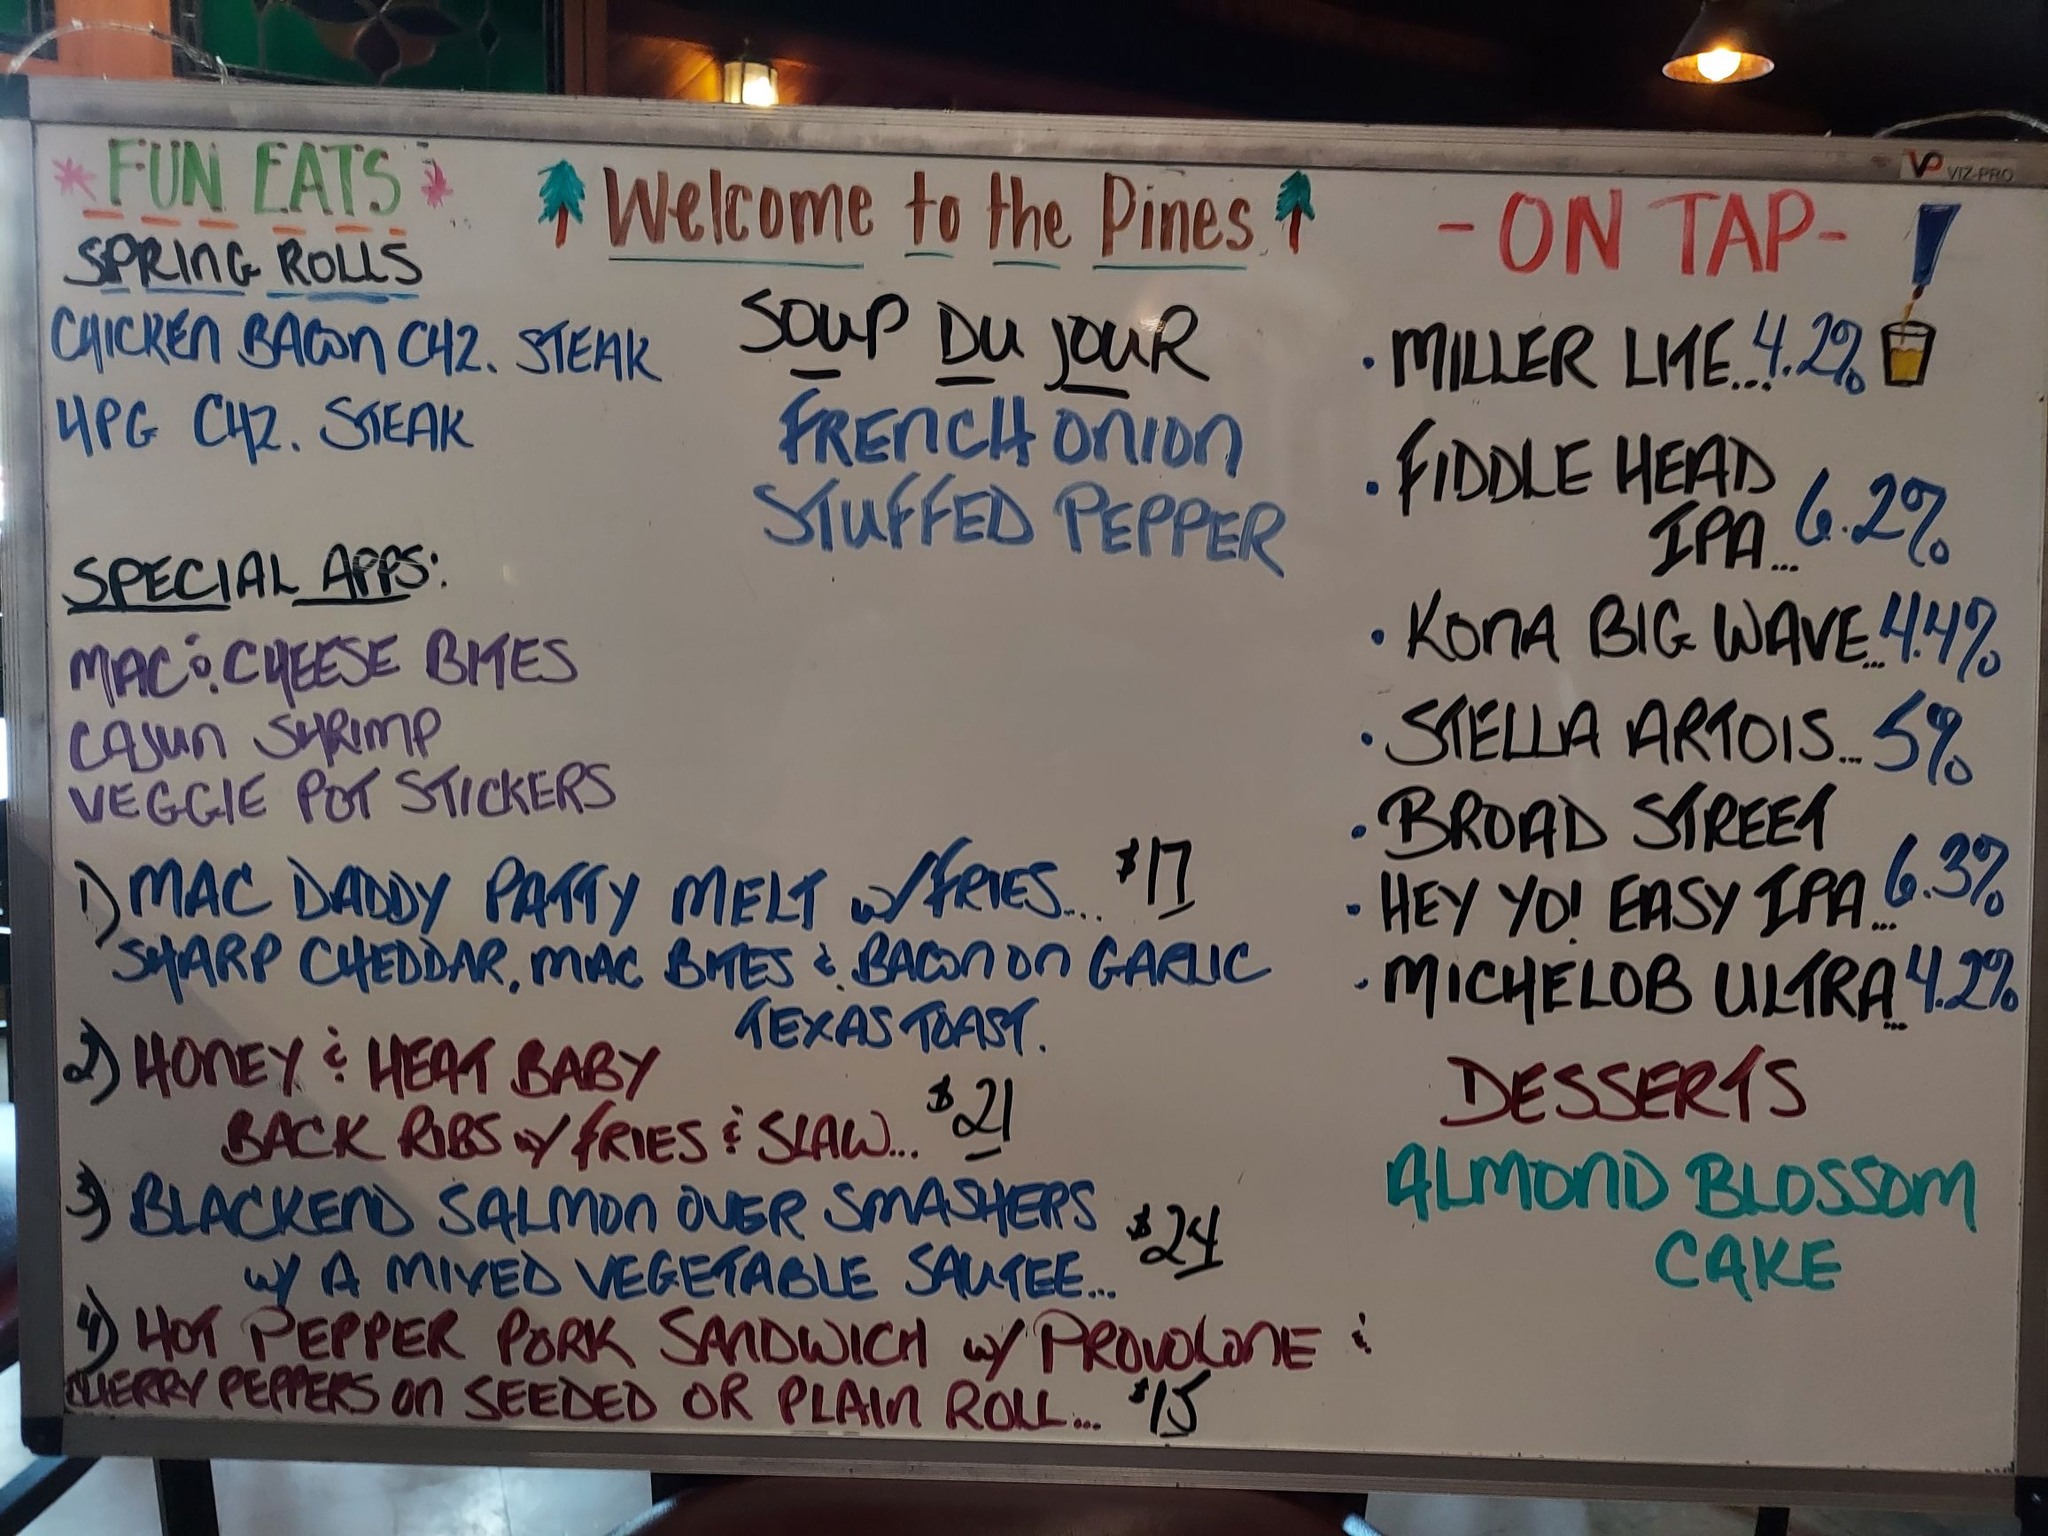 * FUN EATS *
SPRING ROLLS
CHICKEN BACON CHZ. STEAK
HPG CHZ. STEAK
SPECIAL APPS:
MAC & CHEESE BITES
CAJUN SHRIMP
VEGGIE POT STICKERS
Welcome to the Pines
SOUP DU JOUR
FRENCH ONION
STUFFED PEPPER
1) MAC DADDY PATTY MELT w/ FRIES... $17
SHARP CHEDDAR, MAC BITES & BACON ON GARLIC
TEXAS TOAST.
2) HONEY & HEAT BABY
BACK RIBS w/ FRIES & SLAW... $21
3) BLACKEND SALMON OVER SMASHERS
w/ A MIXED VEGETABLE SAUTEE... $24
4) HOT PEPPER PORK SANDWICH w/ PROVOLONE &
CHERRY PEPPERS ON SEEDED OR PLAIN ROLL... $15
VP VIZ-PRO
- ON TAP -
• MILLER LITE... 4.2%
• FIDDLE HEAD
IPA... 6.2%
• KONA BIG WAVE... 4.4%
• STELLA ARTOIS... 5%
• BROAD STREET
• HEY YO! EASY IPA... 6.3%
• MICHELOB ULTRA... 4.2%
DESSERTS
ALMOND BLOSSOM
CAKE